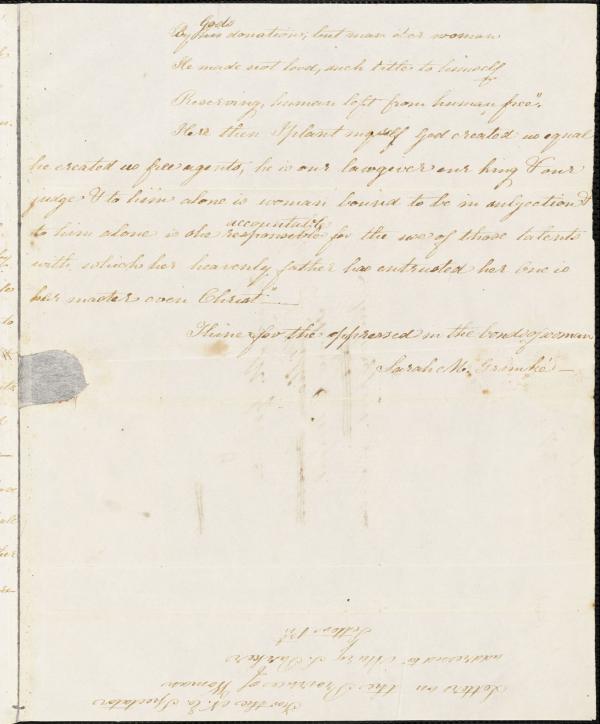 Gods
By his donation; but man o'er woman
He made not lord, such title to himself
Reserving, human left from human free".
Here then I plant myself God created us equal
he created us free agents, he is our lawgiver our king & our
judge & to him alone is woman bound to be in subjection &
accountable
to him alone is she responsible for the use of those talents
with which her heavenly father has entrusted her One is
her master even Christ" —
Thine for the oppressed in the bonds of woman
Sarah M. Grimké —
For the N. E. Spectator
Letters on the Province of Woman
addressed to Mary S. Parker
Letter 1st